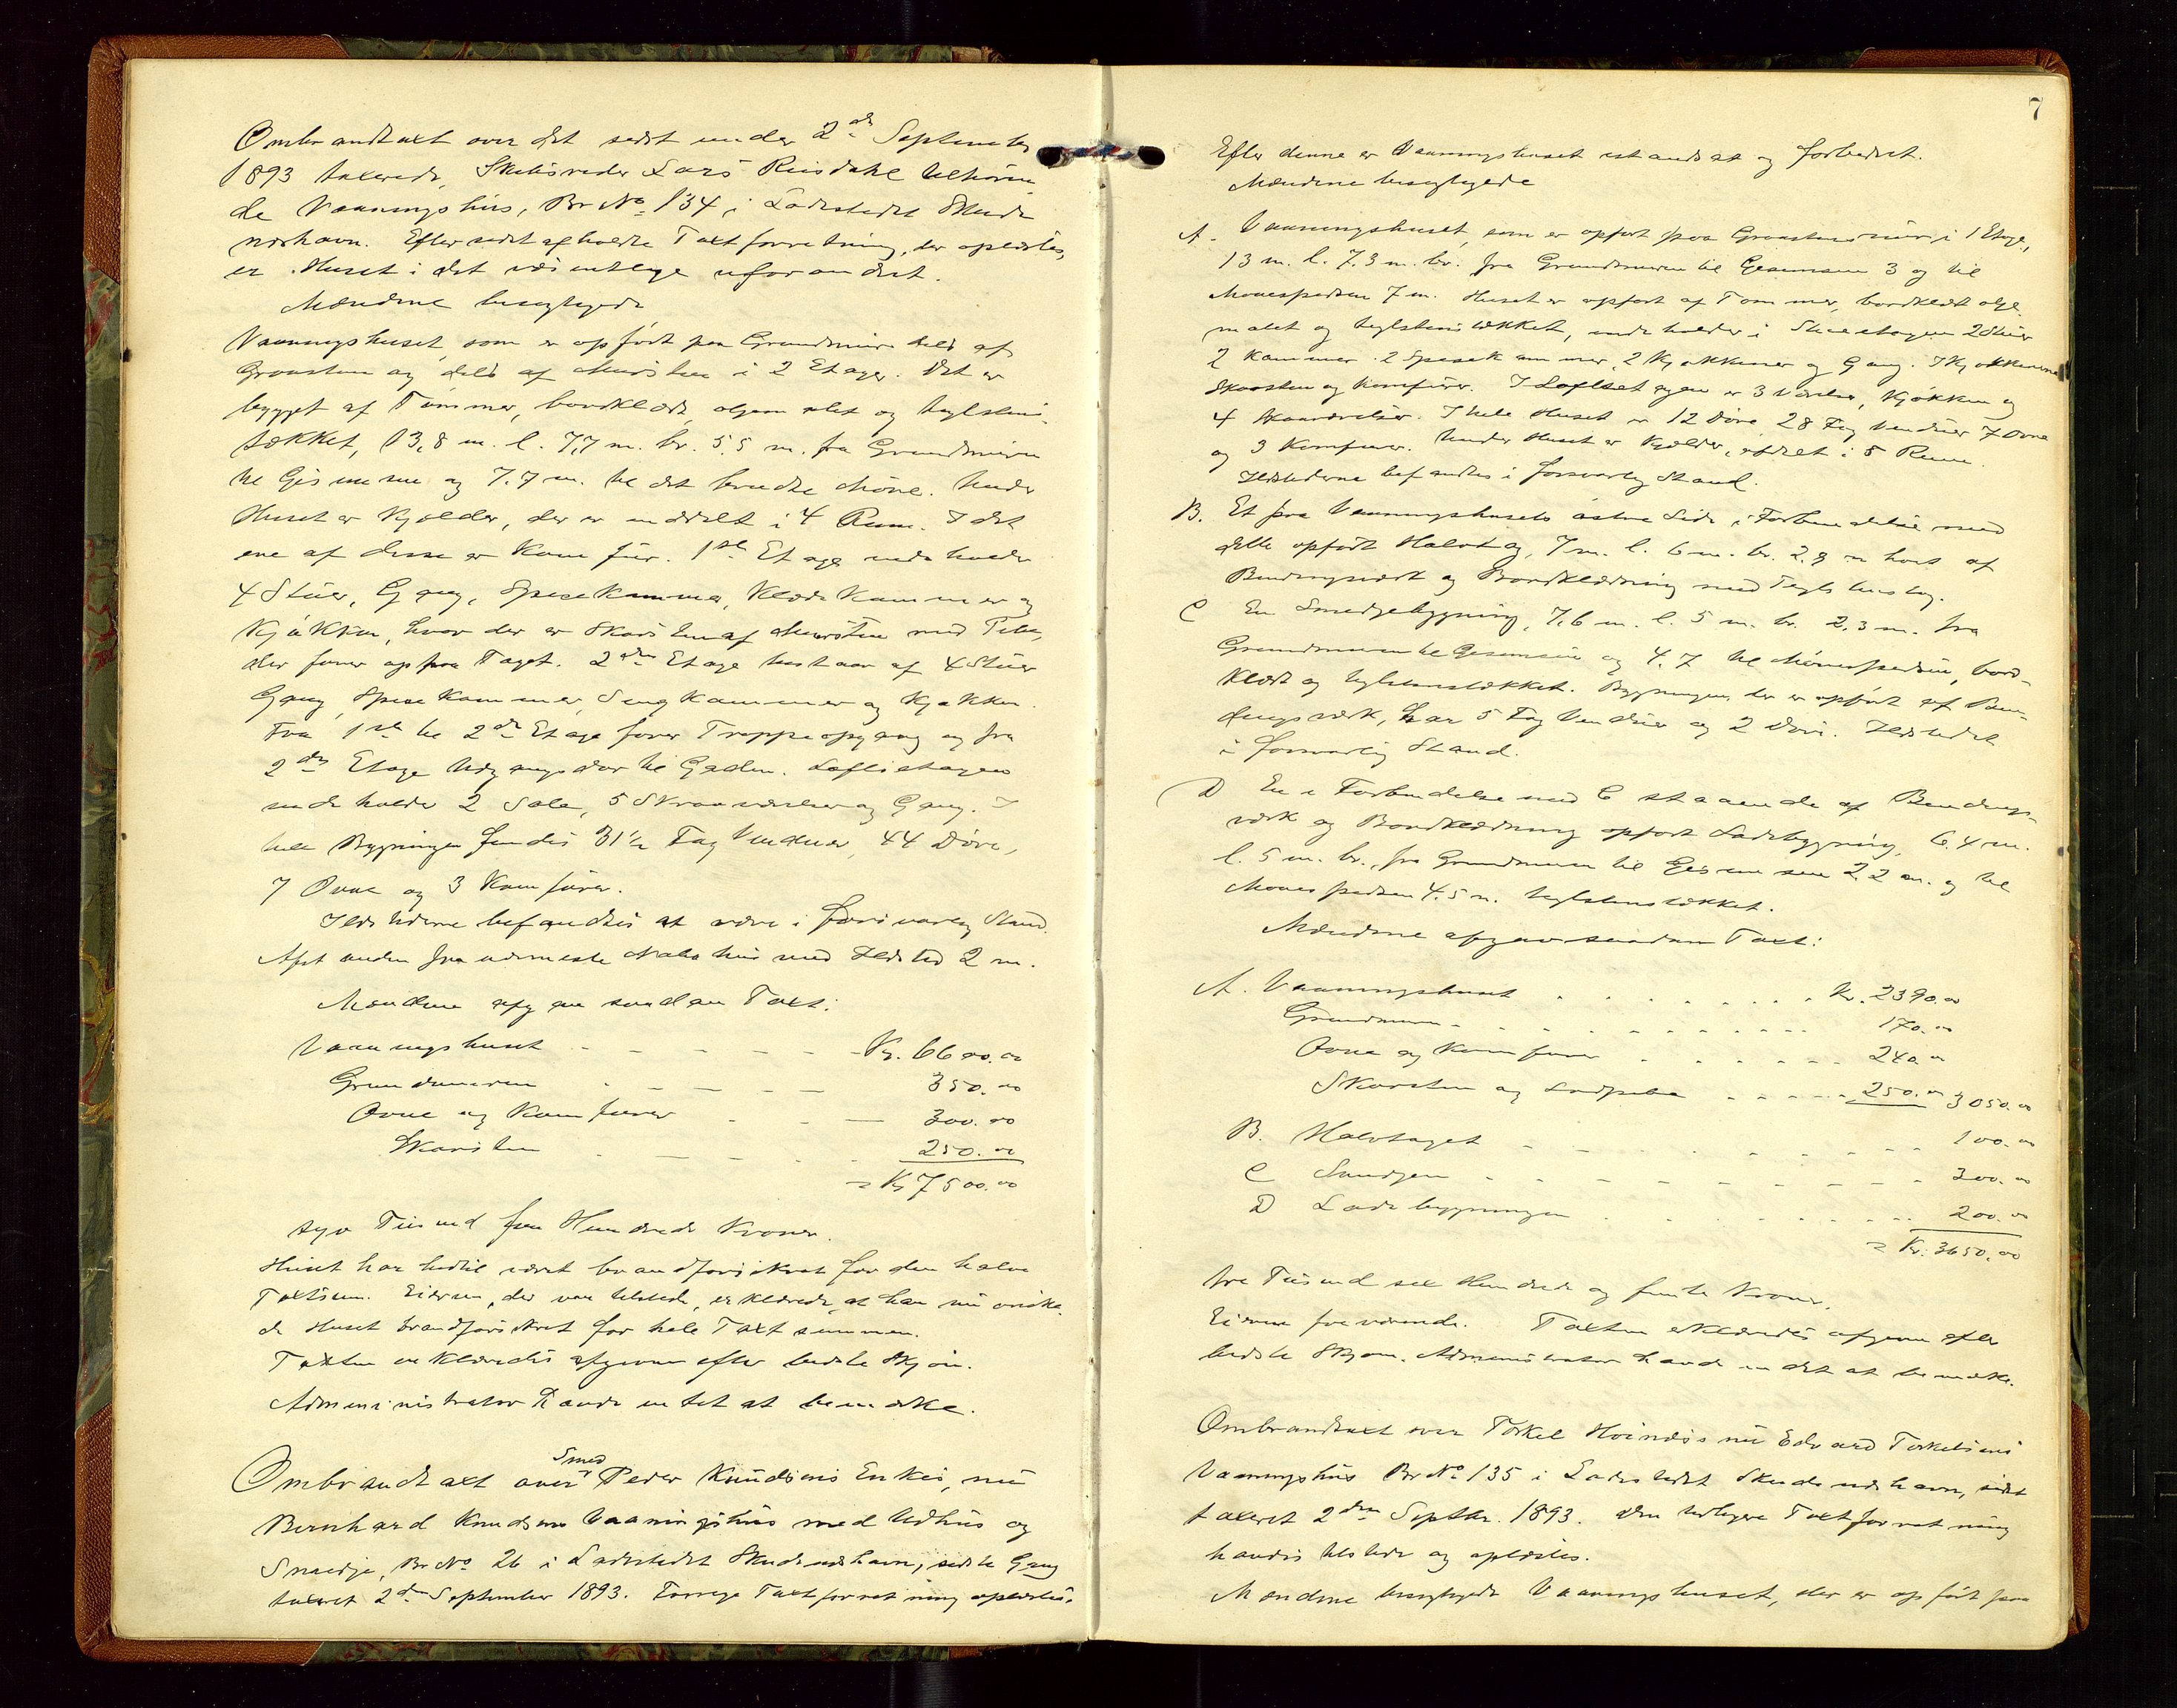 Ombrandtaxt over det sidst under 2den September
1893 taxerede, Skibsreder Lars Risdahl tilhøren
de Vaaningshus, Br No 134 i Ladestedet Skude
neshavn. Efter sidst afholdte Taxtforretning, der oplæstes,
er Huset i det væsentlige uforandret.
Mændene besigtigede
Vaaningshuset, som er opført paa Grundmur dels af
Graasten og dels af Mursten i 2 Etager. Det er
bygget af Tømmer, bordklædt, oljemalet og teglstens-
tækket, 13,8 m. l. 7,7 m. br. 5.5 m. fra Grundmuren
til Gesimsen og 7.7 m. til det brudte Møne. Under
Huset er Kjælder, der er inddelt i 4 Rum. I det
ene af disse er Komfur. 1ste Etage indeholder
4 Stuer, Gang, Spisekammer, Klædekammer og
Kjøkken, hvor der er Skorsten af Mursten med Pibe,
der fører op fra Taget. 2den Etage bestaar af 4 Stuer
Gang, Spisekammer, Sengkammer og Kjøkken.
Fra 1ste til 2den Etage fører Trappeopgang og fra
2den Etage Udgangsdør til Gaden. Loftsetagen
indeholder 2 Sale, 5 Skraaværelser og Gang. I
hele Bygningen findes 31½ Fag Vinduer, 44 Døre,
7 Ovne og 3 Komfurer.
Ildstederne befandtes at være i forsvarlig Stand.
Afstanden fra nærmeste Nabohus med Ildsted 2 m.
Mændene afgav saadan Taxt:
Vaaningshuset - - - - - - Kr. 6600.00
Grundmuren - - - - 350.00
Ovne og Komfurer - - - 300.00
Skorsten - - - - 250.00
= Kr 7500.00
syv Tusind fem Hundrede Kroner.
Huset har hidtil været brandforsikret for den halve
Taxtsum. Eieren, der var tilstede, erklærede, at han nu ønske
de Huset brandforsikret for hele Taxtsummen.
Taxten erklæredes afgiven efter bedste Skjøn.
Administrator havde intet at bemærke.
Ombrandtaxt over Smed Peder Knudsens Enkes, nu
Bernhard Knudsens Vaaningshus med Udhus og
Smedje, Br No 26 i Ladestedet Skudeneshavn, sidste Gang
taxeret 2den September 1893. Forrige Taxtforretning oplæstes.
7
Efter denne er Vaaningshuset istandsat og forbedret.
Mændene besigtigede
A. Vaaningshuset, som er opført paa Graastensmur i 1 Etage,
13 m. l. 7.3 m. br. fra Grundmuren til Gesimsen 3 og til
Mønespidsen 7 m. Huset er opført af Tømmer, bordklædt olje
malet og teglstenstækket, indeholder i Stueetagen 2 Stuer
2 Kammer 2 Spisekammer, 2 Kjøkkener og Gang. I Kjøkkenerne
Skorsten og Komfurer. I Loftsetagen er 3 Værelser, Kjøkken og
4 Skraaværelser. I hele Huset er 12 Døre 28 Fag Vinduer 7 Ovne
og 3 Komfurer. Under Huset er Kjælder, afdelt i 5 Rum.
Ildstederne befandtes i forsvarlig Stand.
B. Et fra Vaaningshusets østre Side i Forbindelse med
dette opført Halvtag, 7 m. l. 6 m. br. 2.8 m høit af
Bindingsværk og Bordklædning med Teglstenstag.
C En Smedjebygning, 7,6 m. l. 5 m. br. 2,3 m. fra
Grundmuren til Gesimsen og 4.7 til Mønespidsen, bord-
klædt og teglstenstækket. Bygningen, der er opført af Bin-
dingsværk, har 5 Fag Vinduer og 2 Døre. Ildstedet
i forsvarlig Stand.
D En i Forbindelse med C staaende af Bindings-
værk og Bordklædning opført Ladebygning, 6.4 m.
l. 5 m. br., fra Grundmuren til Gesimsen 2.2 m. og til
Mønespidsen 4.5 m. teglstenstækket.
Mændene afgav saadan Taxt:
A. Vaaningshuset . . . . . . . . Kr. 2390.00
Grundmuren . . . . . . . . . 170.00
Ovne og Komfurer . . . . . . 240.00
Skorsten og Smedpibe . . . . . 250.00 3050.00
B. Halvtaget . . . . . . . . . 100.00
C Smedjen . . . . . . . . . 300.00
D Ladebygningen . . . . . . . . 200.00
= Kr. 3650.00
tre Tusind sex Hundrede og femti Kroner.
Eieren fraværende. Taxten erklæredes afgiven efter
bedste Skjøn. Administrator havde intet at bemærke.
Ombrandtaxt over Torkel Hoinæs nu Edvard Torkelsens
Vaaningshus Br No 135 i Ladestedet Skudeneshavn, sidst
taxeret 2den Septbr. 1893. Den tidligere Taxtforretning
havdes tilstede og oplæstes.
Mændene besigtigede Vaaningshuset, der er opført paa